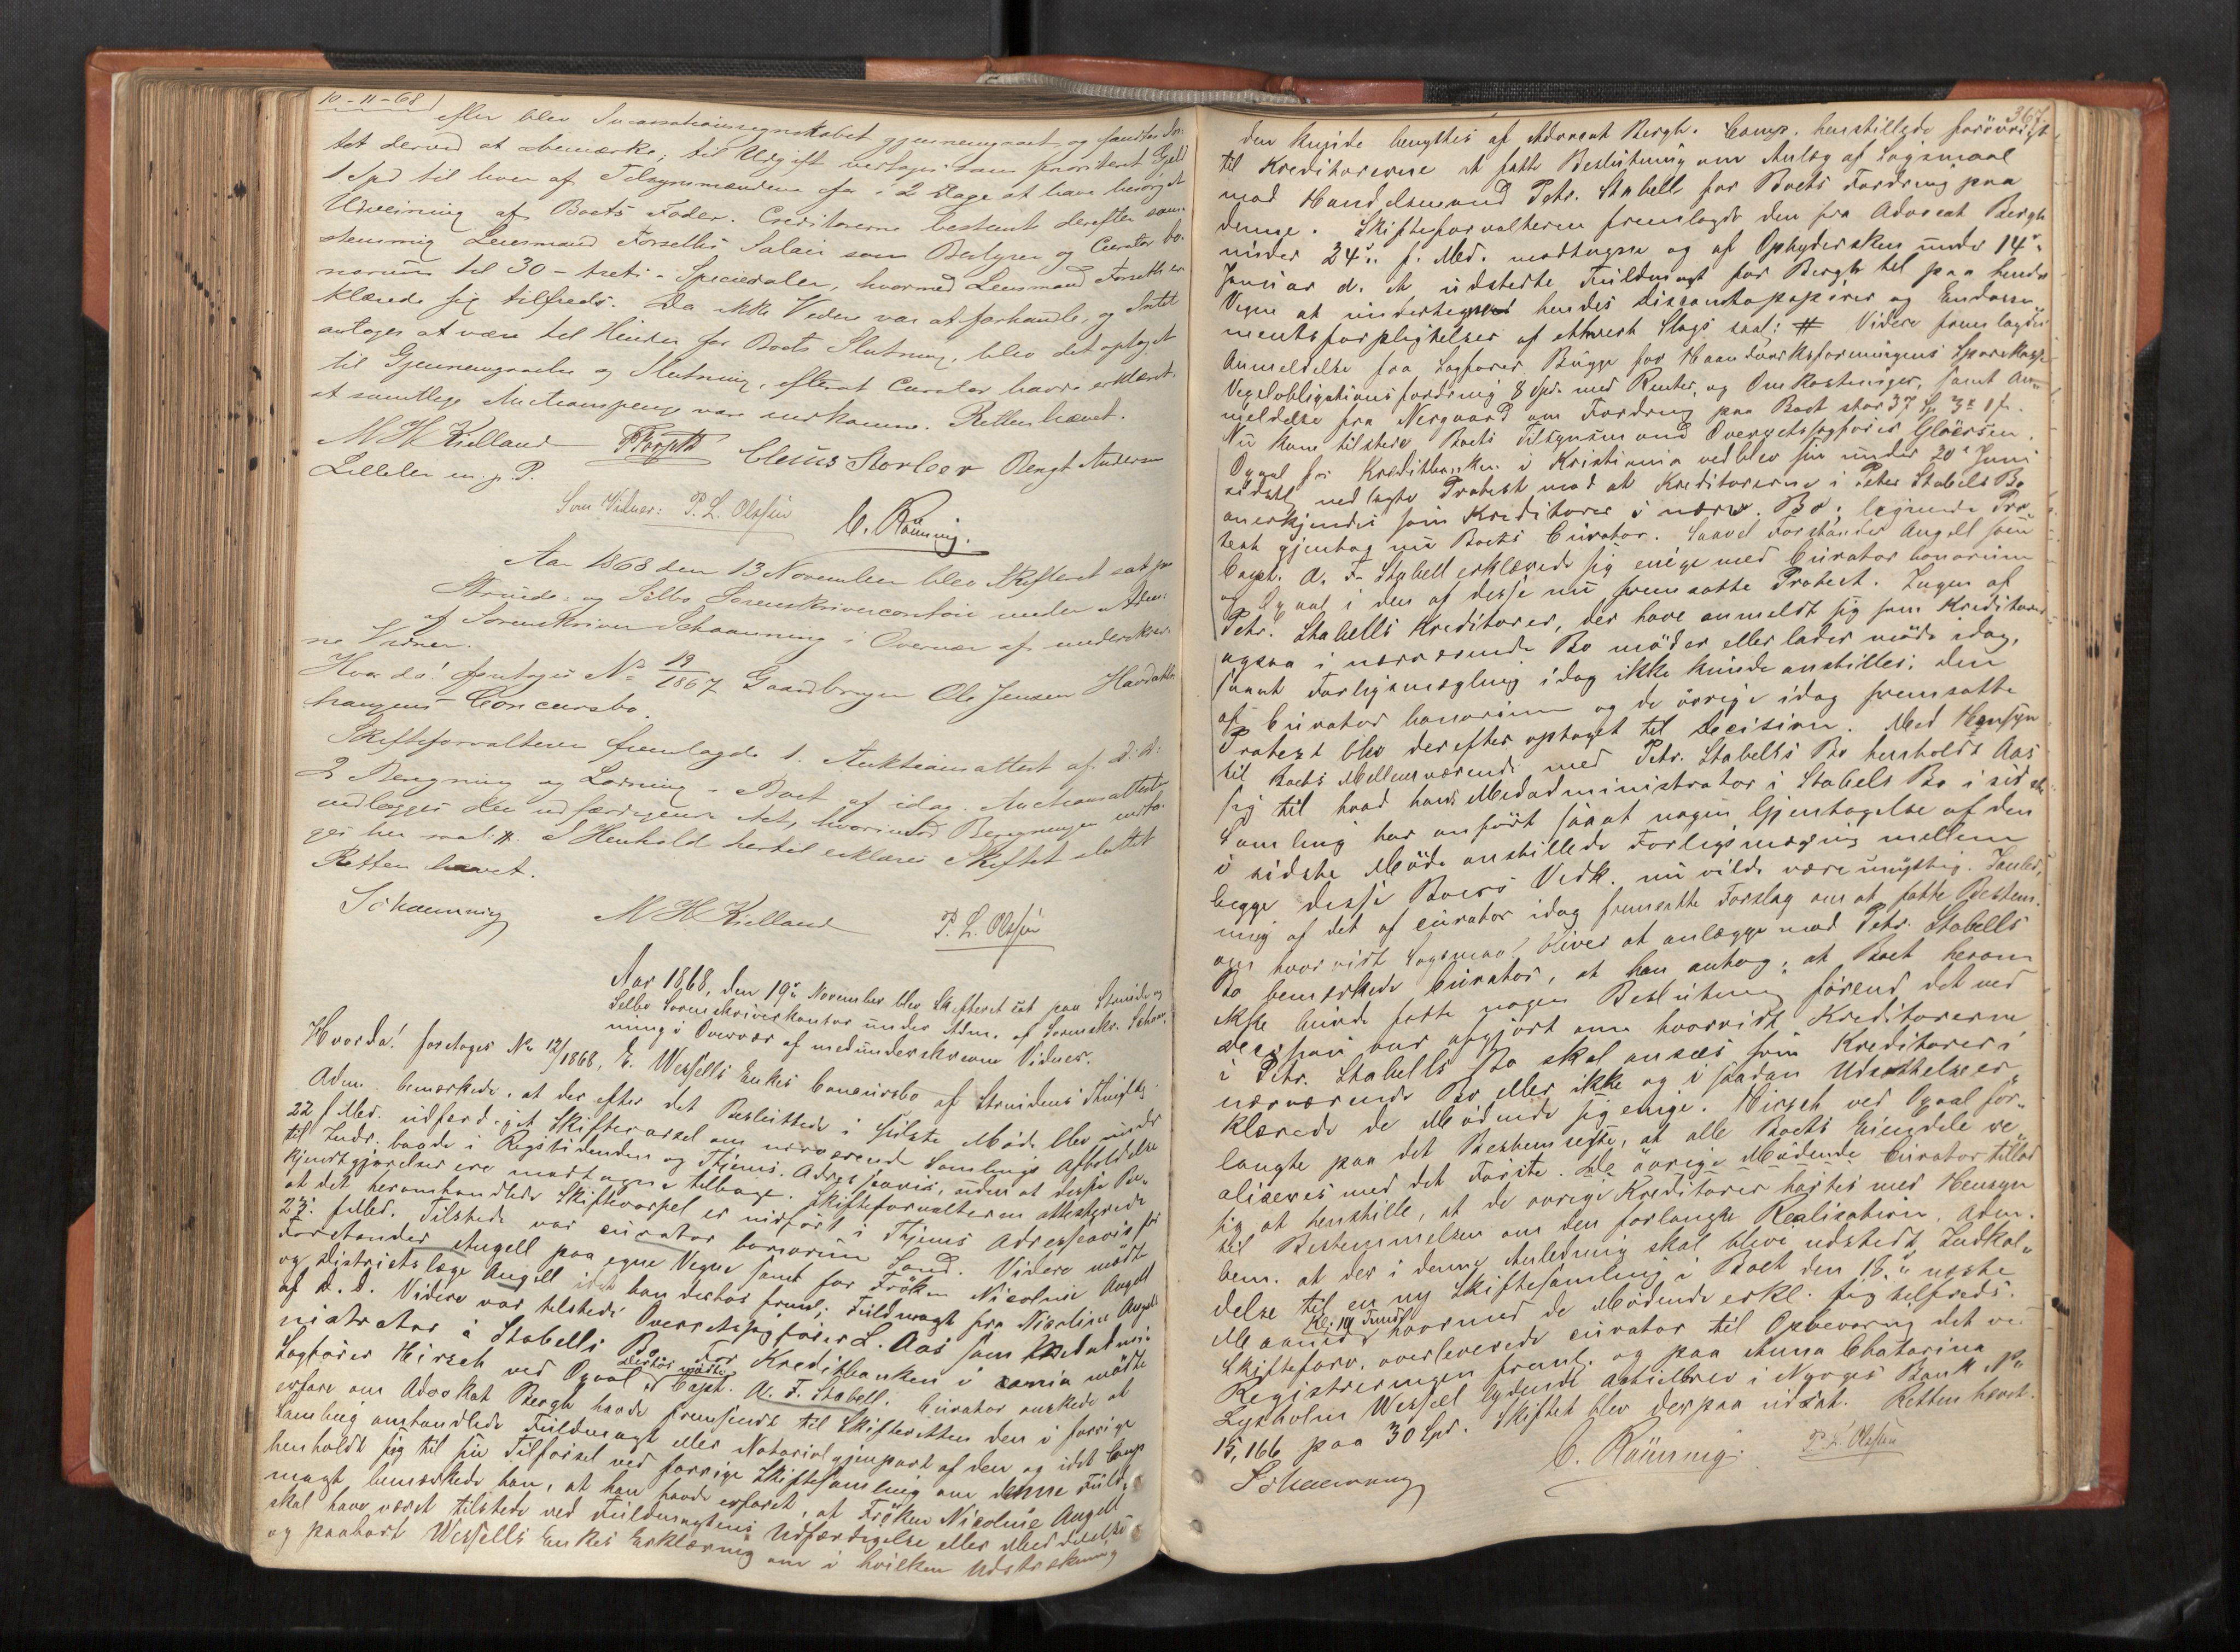 10-11-68
efter blev Incassationsregnskabet gjennemgaaet og fandtes In-
tet derved at bemærke; til Udgift vertages som prioriteret Gjæld
1 Spd til hver af Tilsynsmændene for i 2 Dage at have besørget
Udveining af Boets Foder. Creditorerne bestemte derefter sam-
stemmig Lensmand Forseths Salair som Bestyrer og Curator bo-
norum til 30 - treti - Speciedaler, hvormed Lensmand Forseth er-
klærede sig tilfreds. Da ikke Videre var at forhandle, og Intet
antages at være til Hinder for Boets Slutning, blev det optaget
til Gjennemgaaelse og Slutning, efterat Curator havde erklæret
at samtlige Auctionspenge vare indkomne. Retten hævet.
M H Kielland Forseth Clemus Storleer Bengt Andersen
Lilleler m. p. P.
Som Vidner: P. L. Olssen C. Rönning.
Aar 1868 den 13 November blev Skifteret sat paa
Strinde- og Selbo Sorenskrivercontoir under Adm:
af Sorenskriver Schaanning i Overvær af underskrev-
ne Vidner.
Hvor da! foretoges No 19/1867 Gaardbruger Ole Jensen
haugens Concursbo.
Skifteforvalteren fremlagde 1. Auktionsattest af d: D:
2 Beregning og Lodning i Boet af idag. Auctionsattesten
vedlægges den udfærdigende Act, hvorimod Beregningen indta-
ges her saal: #. I Henhold hertil erklæres Skiftet sluttet
Retten hævet.
Schaanning M H Kielland P. L. Olssen
Aar 1868, den 19de November blev Skifteret sat paa Strinde og
Selbo Sorenskriverkontor under Adm. af Sorenskr. Schan-
ning i Overvær af medunderskrevne Vidner.
Hvorda! foretoges No 12/1868, E. Wessells Enkes Concursbo af Strindens Thinglag.
Adm. bemærkede, at der efter det Besluttede i sidste Møde blev under
22 f. Md. udfærdiget Skiftevarsel om nærværende Samlings Afholdelse
til Indr. baade i Rigstidenden og Thjems. Adresseavis, uden at disse Be-
kjendtgjørelser ere modtagne tilbage. Skifteforvalteren attesterede
at det heromhandlede Skiftevarsel er indført i Thjems Adresseavis for
23. f. Md. Tilstede var curator bonorum Sand. Videre mødte
Forstander Angell paa egne Vegne samt for Frøken Nicoline Angell
og Districtslæge Angell idet han derhos freml: Fuldmagt fra Nicoline Angell
af D. D. Videre var tilstede Overretssagfører L. Aas som Medadmi-
nistrator i Stabells Bo. For Kreditbanken i xania mødte
Sagfører Hirsch ved Opaal derhos mødte Capt. A. F. Stabell. Curator ønskede at
erfare om Advokat Bergh havde fremsendt til Skifteretten den i forrige
Samling omhandlede Fuldmagt eller Notarialgjenpart af den og idet Comp
henholdt sig til sin Tilførsel ved forrige Skiftesamling om denne Fuld-
magt bemærkede han, at han havde erfaret, at Frøken Nicoline Angell
skal have været tilstede ved Fuldmagtens Udfærdigelse eller Meddelelse
og paahørt Wessells Enkes Erklæring om i hvilken Udstrækning
367
den kunde benyttes af Advocat Bergh. Comp. henstillede forøvrigt
til Kreditorerne at fatte Beslutning om Anlæg af Sogsmaal
mod Handelsmand Petr. Stabell for Boets Fordring paa
denne. Skifteforvalteren fremlagde den fra Advocat Bergh
under 24de f. Md. modtagne og af Opbydersken under 14de
Januar d. A udstedte Fuldmagt for Bergh til paa hendes
Vegne at undertegne hendes Discontopapirer og Endosse-
mentsforpligtelser af ethvert Slags saal: # Videre fremlagdes
Anmeldelse fra Sagfører Bugge for Haandværksforeningens Sparekasse
Vexelobligationsfordring 8 Spd. med Renter, og Omkostninger, samt An-
meldelse fra Nergaard om Fordring paa Boet stor 37 Sp. 3 # 1 s.
Nu kom tilstede Boets Tilsynsmand Overretssagfører Gløersen.
Opaal for Kreditbanken i Kristiania vedblev sin under 20de Juni
sidstl. nedlagte Protest mod at Kreditorerne i Peter Stabels Bo
anerkjendes som Kreditorer i nærv. Bo; lignende Pro-
test gjentog nu Boets Curator. Saavel Forstander Angell som
Capt. A. F. Stabell erklærede sig enige med Curator bonorum
og Opaal i den af disse nu fremsatte Protest. Ingen af
Petr. Stabells Kreditorer, der have anmeldt sig som Kreditorer
ogsaa i nærværende Bo møder eller lader møde idag,
saaat Forligsmægling idag ikke kunde anstilles; den
af Curator bonorum og de øvrige idag fremsatte
Protest blev derefter optaget til Decision. Med Hensyn
til Boets Mellemværende med Petr. Stabells Bo henholdt Aas
sig til hvad hans Medadministrator i Stabels Bo i sidste
Samling har anført saaat nogen Gjentagelse af den
i sidste Møde anstillede Forligsmægling mellem
begge disse Boers Vedk. nu vilde være unyttig. Imled-
ning af det af curator idag fremsatte Forslag om at fatte Bestem.
om hvorvidt Sogsmaal bliver at anlægge mod Petr. Stabells
Bo bemærkede Curator, at han antog, at Boet herom
ikke burde fatte nogen Beslutning førend det ved
Decision var afgjort om hvorvidt Kreditorerne
i Petr. Stabells Bo skal ansees som Kreditorer i
nærværende Bo eller ikke og i saadan Udsættelse er-
klærede de Mødende sig enige. Hirsch ved Opaal for-
langte paa det Bestemteste, at alle Boets Eiendele re-
aliseres med det Første. De øvrige Mødende Curator tillod
sig at henstille, at de øvrige Kreditorer hørtes med Hensyn
til Bestemmelsen om den forlangte Realisation. Adm.
bem. at der i denne Anledning skal blive udstedt Indkal-
delse til en ny Skiftesamling i Boet den 18de næste
Maaned Kl. 10 Form. hvormed de Mødende erkl. sig tilfreds.
Skifteforv. overleverede curator til Opbevaring det ve
Registreringen freml. og paa Anna Chatarina
Lysholm Wessel lydende Actiebrev i Norges Bank No
15,166 paa 30 Spd. Skiftet blev derpaa udsat. Retten hævet.
Schaanning C. Rönning. P. L. Olssen